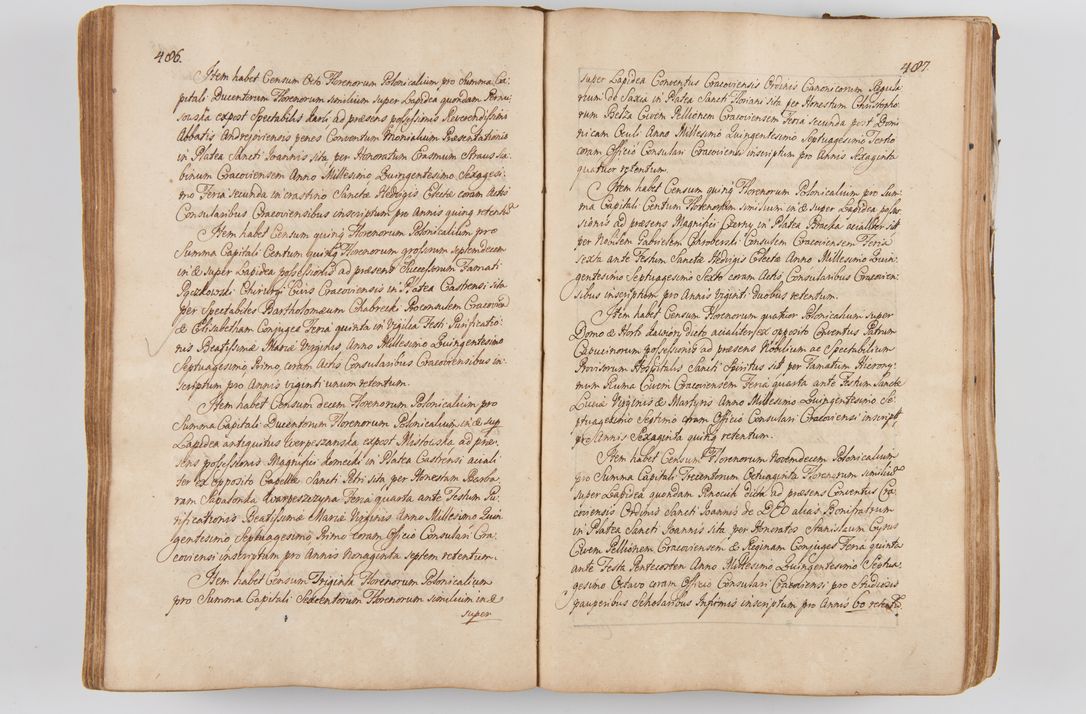 406.
Item habet Censum Octo Florenorum Polonicalium pro Summa Ca-
pitali Ducentorum Florenorum similium super Lapidea quondam Pernu-
sowska expost Spectabilis Karli ad præsens possessionis Reverendissimi
Abbatis Andrejoviensis penes Conventum Monialium Præsentationis
in Platea Sancti Joannis sita per Honoratum Erasmum Straus Sa-
binum Cracoviensem Anno Millesimo Quingentesimo Sexagesi-
mo Feria secunda in crastino Sanctæ Hedvigis Electæ coram Actis
Consularibus Cracoviensibus inscriptum pro Annis quinq retentū
Item habet Censum quinq Florenorum Polonicalium pro
Summa Capitali Centum quinq Florenorum grossorum septemdecem
in & super Lapidea possessionis ad præsens Successorum Famati
Pączkowski Chirurgi Civis Cracoviensis in Platea Castrensi sita
per Spectabiles Bartholomæum Chabrecki Proconsulem Cracovien
& Elisabetham Conjuges Feria quinta in Vigilia Festi Purificatio-
nis Beatissimæ Mariæ Virginis, Anno Millesimo Quingentesimo
Septuagesimo Primo, coram Actis Consularibus Cracoviensibus in-
scriptum pro Annis viginti unum retentum.
Item habet Censum decem Florenorum Polonicalium pro
Summa Capitali Ducentorum Florenorum Polonicalium in & sup
Lapidea antiquitus expost Mistowska ad præ-
sens possessionis Magnifici Romecki in Platea Castrensi aciali-
ter ex opposito Capellæ Sancti Petri sita, per Honestam Barba-
ram Feria quarta ante Festum Pu-
rificationis Beatissimæ Mariæ Virginis Anno Millesimo Quin-
gentesimo Septuagesimo Primo coram Officio Consulari Cra-
coviensi inscriptum pro Annis Nonaginta septem retentum.
Item habet Censum Triginta Florenorum Polonicalium
pro Summa Capitali Sedecentorum Florenorum similium in &
super
407.
super Lapidea Conventus Cracoviensis Ordinis Canonicorum Regula-
rium de Saxia in Platea Sancti Floriani sita per Honestum Christopho-
rum Betza Civem Pellionem Cracoviensem Feria secunda post Domi-
nicam Oculi Anno Millesimo Quingentesimo Septuagesimo Tertio
coram Officio Consulari Cracoviensi inscriptum pro Annis Sexaginta
quatuor retentum.
Item habet Censum quinq Florenorum Polonicalium pro Sum-
ma Capitali Centum Florenorum similium in & super Lapidea posses-
sionis ad præsens Magnifici Czerny in Platea Bracka acialiter sita
per Nobilem Gabrielem Consulem Cracoviensem Feria
sexta ante Festum Sanctæ Hedvigis Electæ Anno Millesimo Quin-
gentesimo Septuagesimo Sexto coram Actis Consularibus Cracovien-
sibus inscriptum pro Annis Viginti Duobus retentum.
Item habet Censum Florenorum quatuor Polonicalium super
Domo & Horto dicto acialiter, ex opposito Conventus Patrum
Capucinorum possessionis ad præsens Nobilium ac Spectabilium
Provisorum Hospitalis Sancti Spiritus sita per Famatum Hierony-
mum Ruma Civem Cracoviensem Feria quarta ante Festum Sanctæ
Luciæ Virginis & Martyris Anno Millesimo Quingentesimo Se-
ptuagesimo Septimo coram Officio Consulari Cracoviensi inscript
pro Annis Sexaginta quinq retentum.
Item habet Censum Florenorum Novemdecem Polonicalium
pro Summa Capitali Trecentorum Octuaginta Florenorum similium
super Lapidea quondam Pinocich dicta ad præsens Conventus Cra-
coviensis Ordinis Sancti Joannis de DEO alias Bonifratrum
in Platea Sancti Joannis sita per Honoratos Stanislaum Cyrus
Civem Pellionem Cracoviensem & Reginam Conjuges Feria quinta
ante Festa Pentecosten Anno Millesimo Quingentesimo Septua-
gesimo Octavo coram Officio Consulari Cracoviensi pro Studiosis
pauperibus Scholaribus Infirmis inscriptum pro Annis 60 retentū